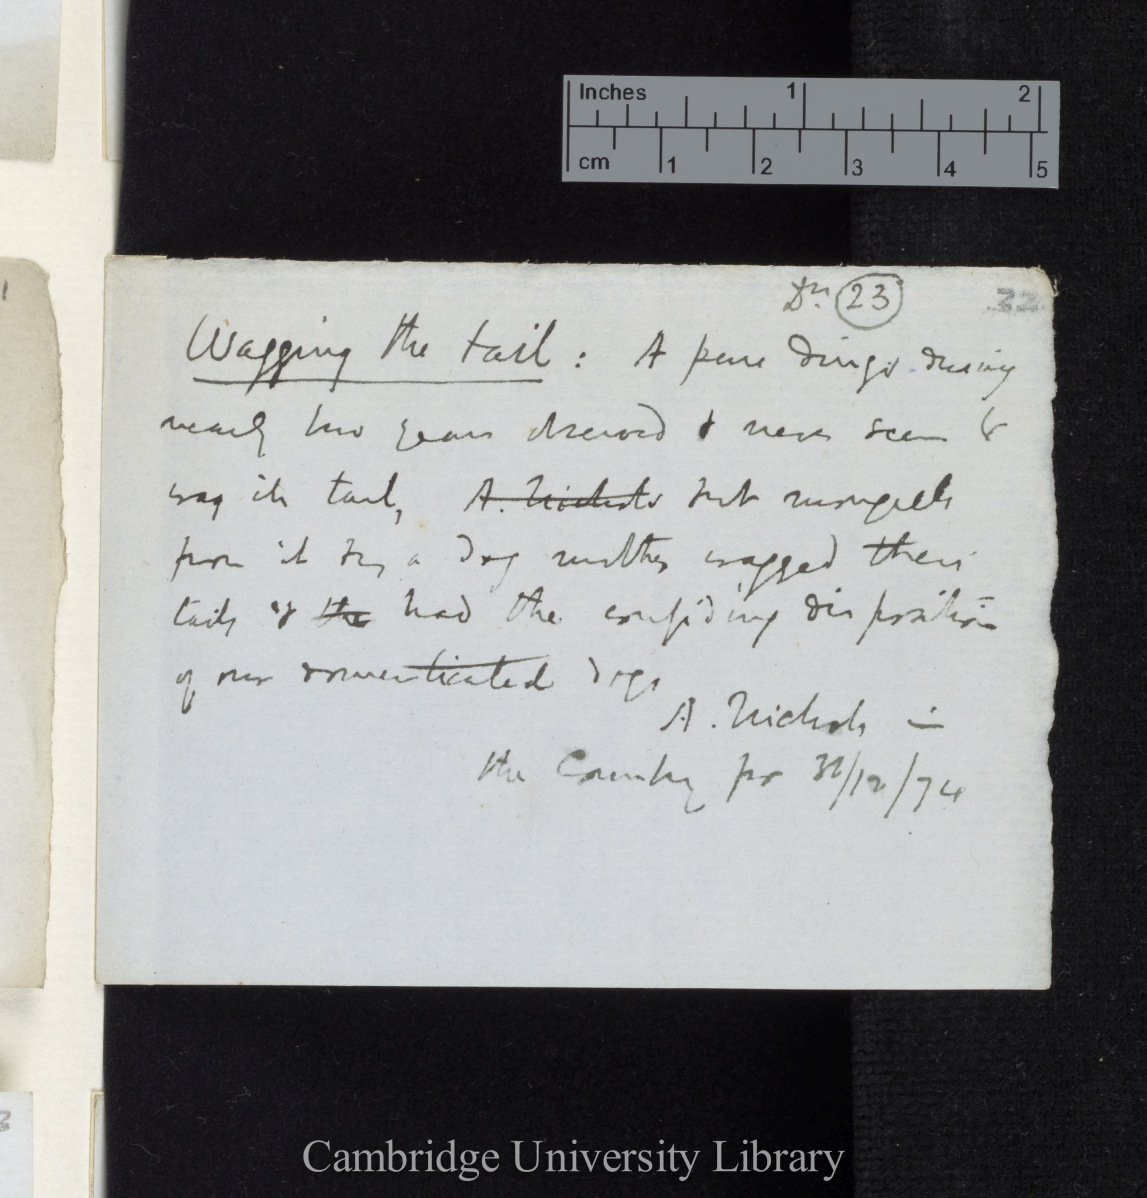 Inches 1 2
cm 1 2 3 4 5
1
Dn 23 32
Wagging the tail: A pure dingo during
nearly two years observed & never seen to
wag its tail, A. Nichols but mongrels
from it by a dog mother wagged their
tails & the had the confiding disposition
of our domesticated dogs
A. Nichols in
the Country for 31/12/74
3
Cambridge University Library